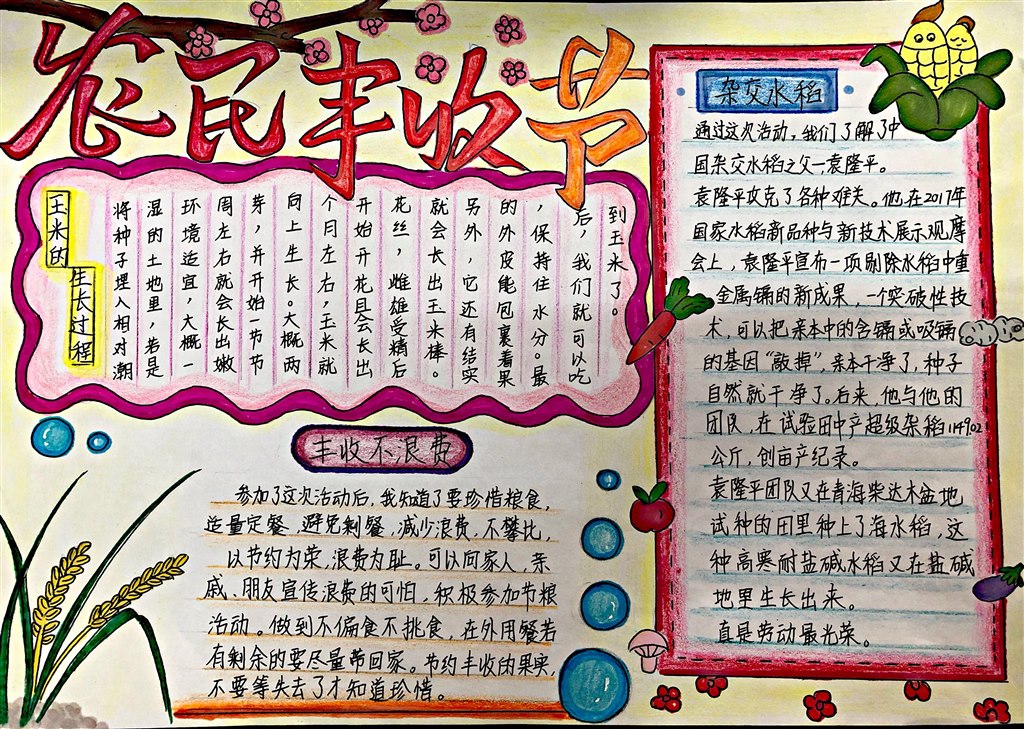 农民丰收节
玉米的
生长过程
将种子埋入相对潮
湿的土地里,若是
环境适宜,大概一
周左右就会长出嫩
芽,并开始一节节
向上生长。大概两
个月左右,玉米就
开始开花且会长出
花丝,雌雄受精后
就会长出玉米棒。
另外,它还有结实
的外皮能包裹着果
,保持住水分。最
后,我们就可以吃
到玉米了。
丰收不浪费
参加了这次活动后,我知道了要珍惜粮食,
适量定餐、避免剩餐,减少浪费,不攀比,
以节约为荣,浪费为耻。可以向家人,亲
戚、朋友宣传浪费的可怕,积极参加节粮
活动。做到不偏食不挑食,在外用餐若
有剩余的要尽量带回家。节约丰收的果实,
不要等失去了才知道珍惜。
杂交水稻
通过这次活动,我们了解了中
国杂交水稻之父—袁隆平。
袁隆平攻克了各种难关。他在2017年
国家水稻新品种与新技术展示观摩
会上,袁隆平宣布一项剔除水稻中重
金属镉的新成果,一个突破性技
术,可以把亲本中的含镉或吸镉
的基因“敲掉”,亲本干净了,种子
自然就干净了。后来,他与他的
团队,在试验田中产超级杂稻1149.02
公斤,创亩产纪录。
袁隆平团队又在青海柴达木盆地
试种的田里种上了海水稻,这
种高寒耐盐碱水稻又在盐碱
地里生长出来。
真是劳动最光荣。